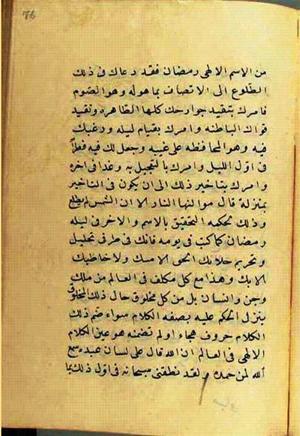 76
من الاسم الالهى رمضان فقد دعاك فى ذلك
الطلوع الى الاتصاف بما هو له وهو الصوم
فامرك بتقييد جوارحك كلها الظاهرة وتقييد
قواك الباطنة وامرك بقيام ليله ورغبك
فيه وهو المحافظة على غيبه وجعل لك فيه فطرًا
فى اول الليل وامرك بالتعجيل به وغذا فى اخره
وامرك بتاخير ذلك الى ان يكون فى التاخير
بمنزلة قال هو النهار الا ان الشمس لم تطلع
وذلك لحكمه التحقيق بالاسم والاخر فى ليله
رمضان كما كنت فى يومه فانك فى طرفى تحليل
وتحريم حالك الحق الا منك ولا خاطبك
الا بك وهذا مع كل مكلف فى العالم من ملك
وجن وانسان بل من كل مخلوق حال ذلك المخلوق
ينزل الحكم عليه بصفة الكلام سواء ضم ذلك
الكلام حروف هجاء او لم تضمنه هو عين الكلام
الالهى فى العالم ان الله قال على لسان عبده سمع
الله لمن حمده ولقد نطقنى سبحانه فى اول ذلك بما